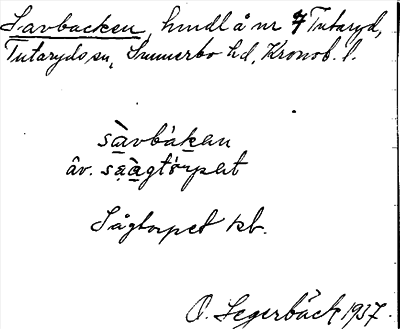 Savbacken, hmdl å nr 7 Tutaryd,
Tutaryds sn, Sunnerbo hd, Kronob. l.
sàvbákan
äv. sàagtórpat
Sågtorpet kb.
O. Segerbäck 1937.